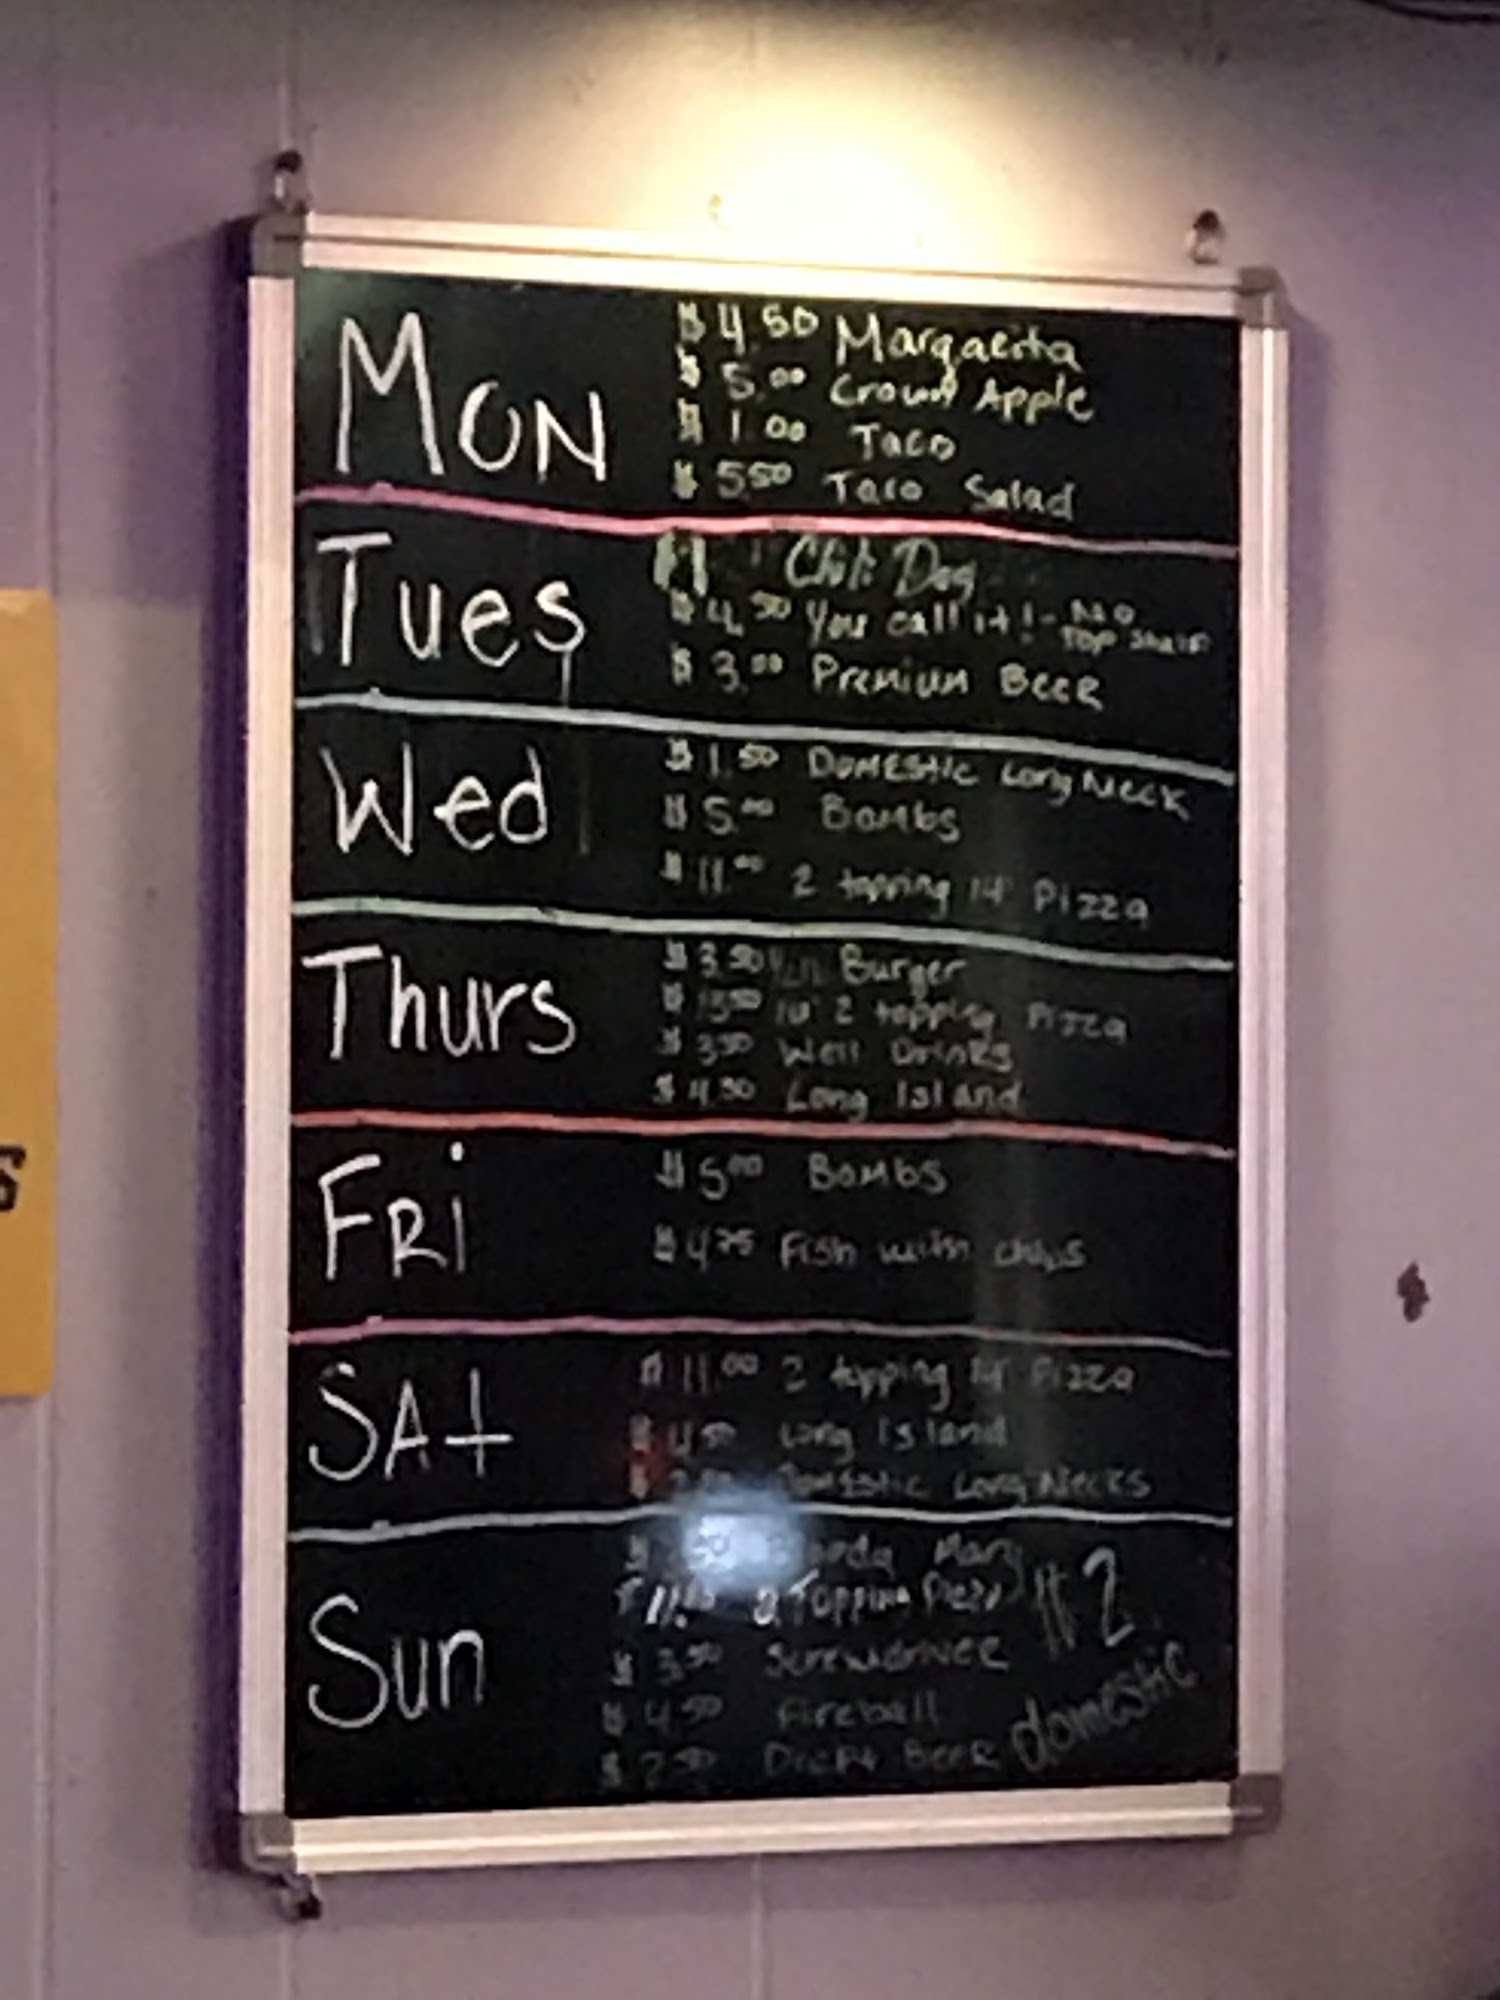 MON
$4.50 Margaerita
$5.00 Crown Apple
$1.00 Taco
$5.50 Taco Salad
Tues
$1 Chili Dog
$4.50 You call it! - NO
TOP Shelf
$3.00 Premium Beer
Wed
$1.50 DOMEStic Long Neck
$5.00 Bombs
$11.00 2 topping 14" Pizza
Thurs
$3.50 Burger
2 topping Pizza
$3.50 Well Drinks
$4.50 Long Island
FRi
$5.00 Bombs
$4.75 Fish with chips
SAt
$11.00 2 topping 14" Pizza
$4.50 Long Island
Domestic Long Necks
Sun
Mary
2 Topping Pizza
$3.50 Screwdriver
$4.50 Fireball
$2.50 Draft Beer
$2
domestic
S